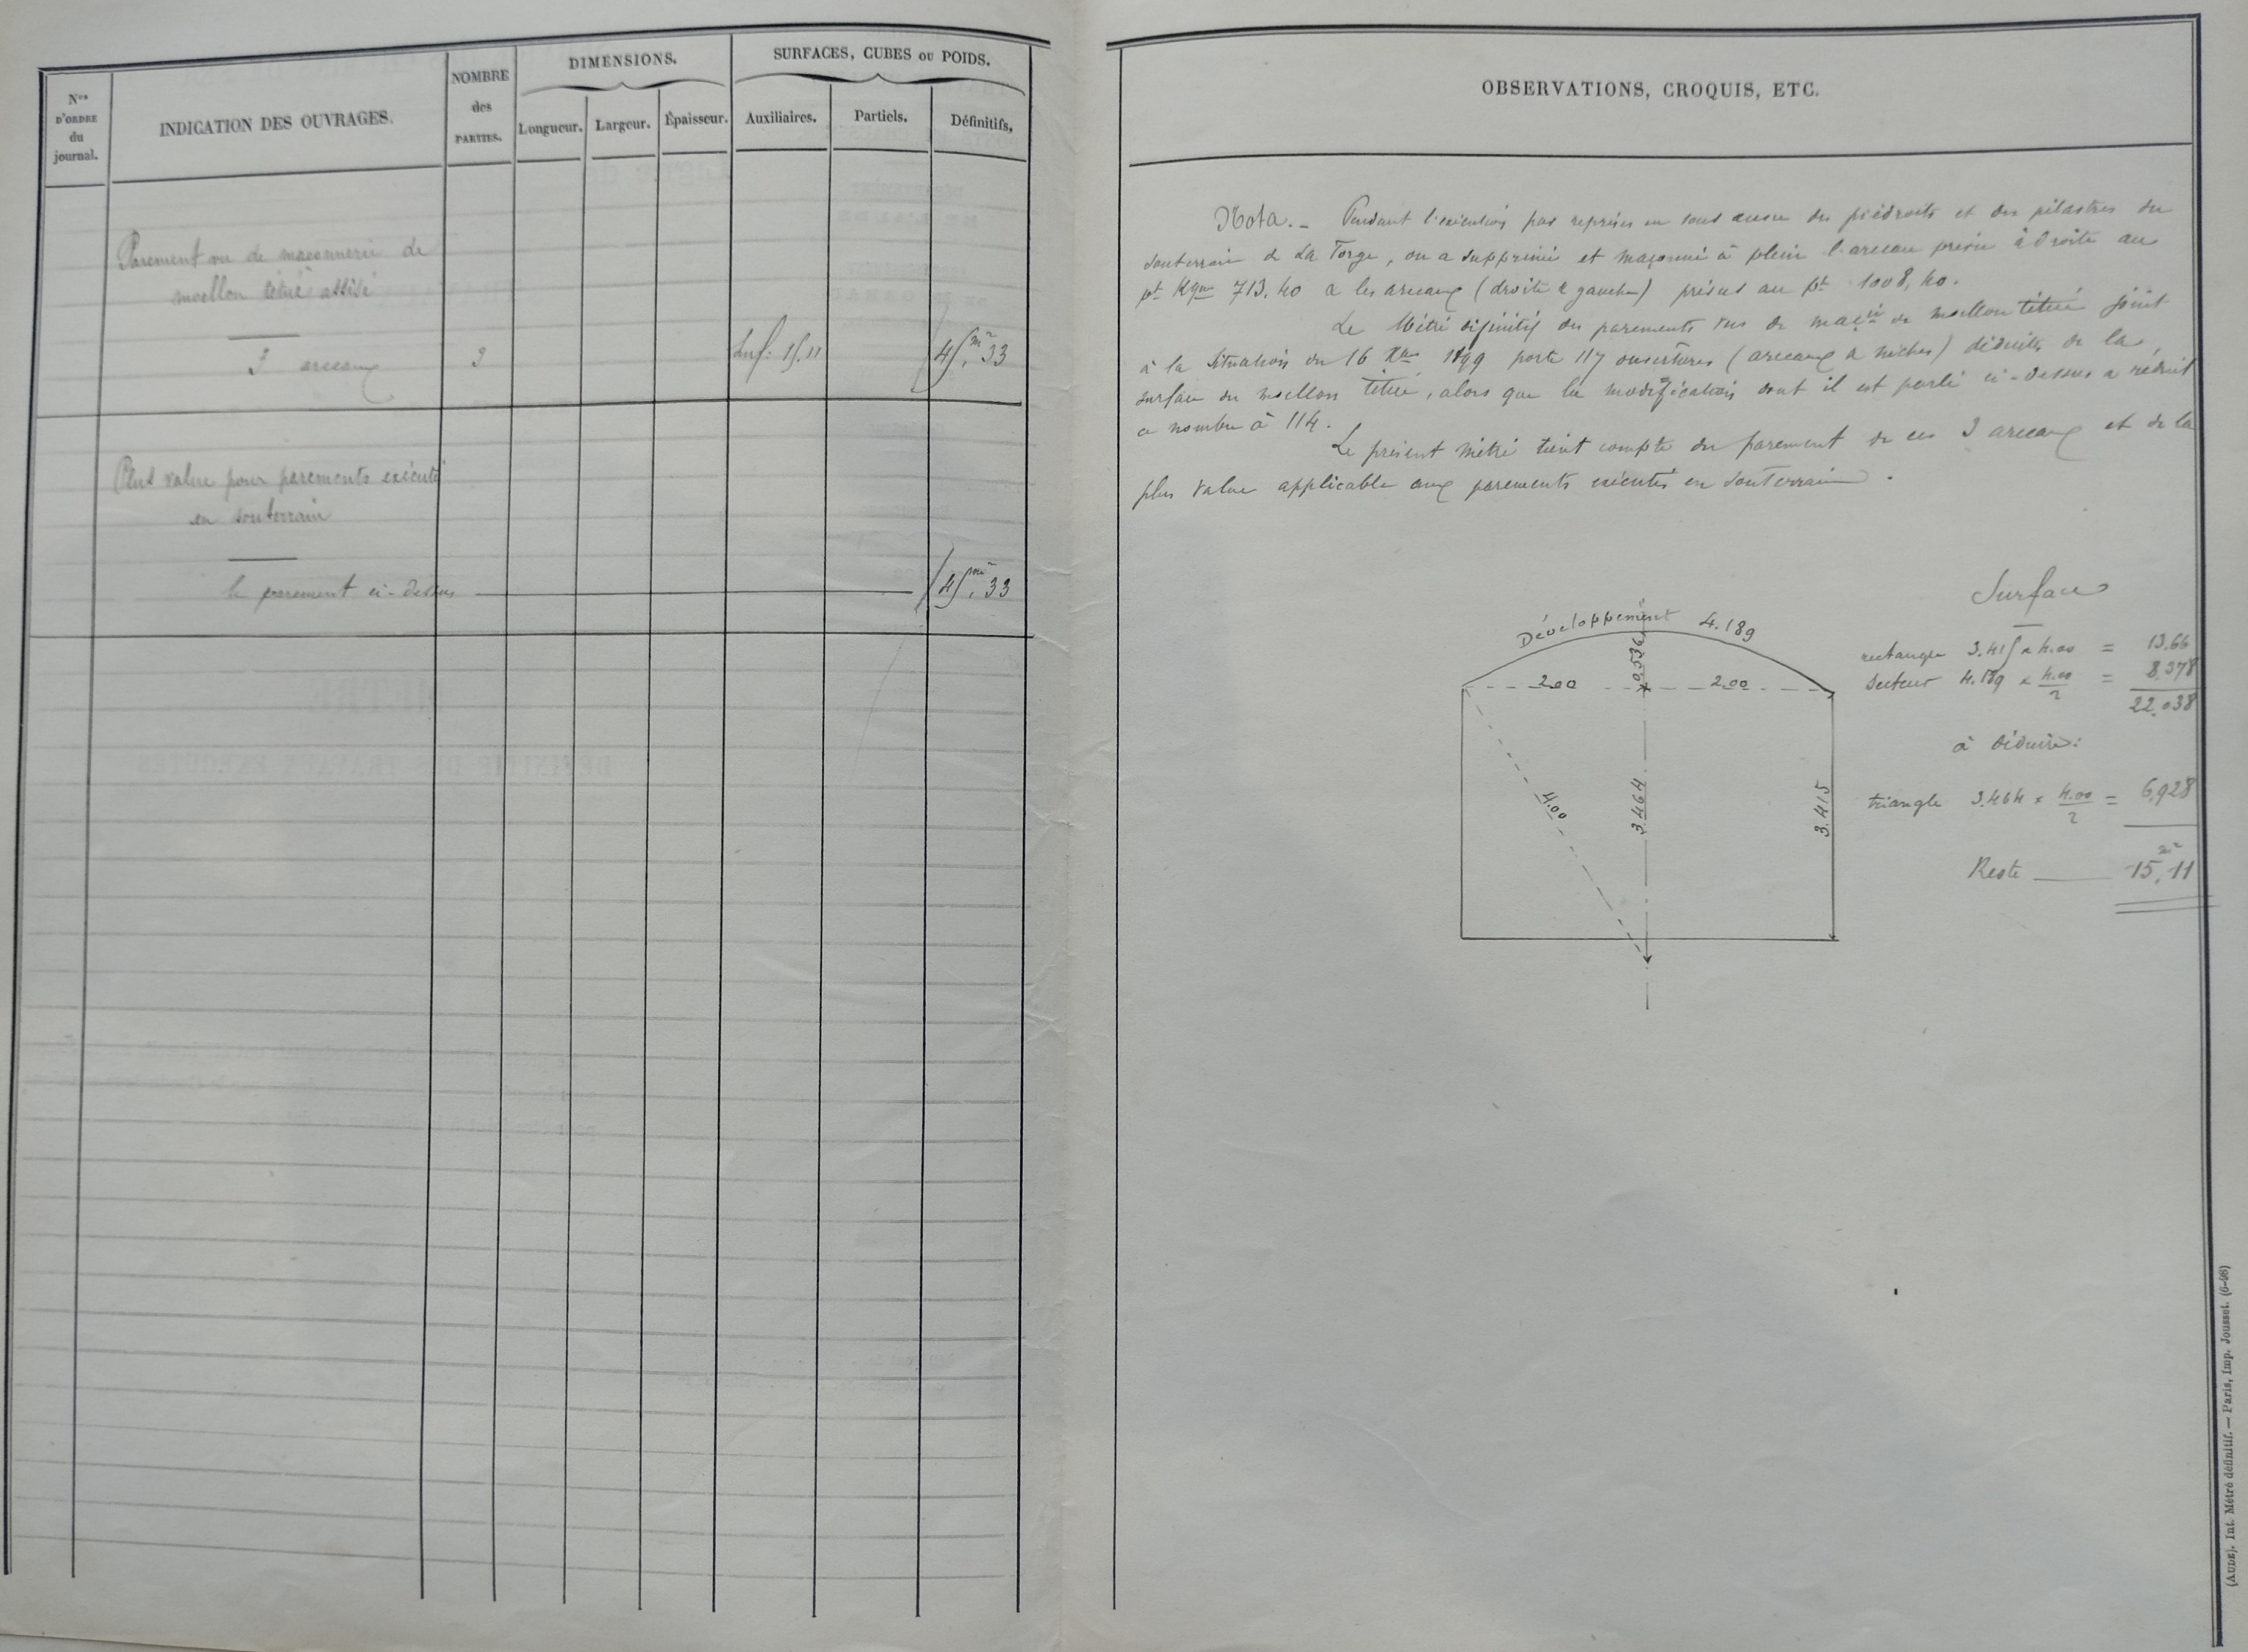 Nos D'ORDRE du journal.
INDICATION DES OUVRAGES.
NOMBRE des PARTIES.
DIMENSIONS.
Longueur. Largeur. Épaisseur.
SURFACES, CUBES OU POIDS.
Auxiliaires. Partiels. Définitifs.
Parement vu de maçonnerie de
moellon têtué assisé
3 arceaux 3 Surf: 15.11 45,m²33
Plus value pour parements exécutés
en souterrain
le parement ci-dessus 45,m²33
OBSERVATIONS, CROQUIS, ETC.
Nota. - Pendant l'exécution par reprises en sous œuvre des piédroits et des pilastres du
souterrain de La Forge, on a supprimé et maçonné à plein l'arceau prévu à droite au
pt Kque 713.40 & les arceaux (droite & gauche) prévus au pt 1008,40.
Le Métré définitif des parements vus de maçrie de moellon têtué joint
à la situation du 16 Xbre 1899 porte 117 ouvertures (arceaux & niches) déduites de la
surface du moellon têtué, alors que la modification dont il est parlé ci-dessus a réduit
ce nombre à 114.
Le présent métré tient compte du parement de ces 3 arceaux et de la
plus value applicable aux parements exécutés en souterrain.
Surface
Développement 4.189
0.536
2.00 2.00
4.00
3.464
3.415
rectangle 3.415 x 4.00 = 13.66
secteur 4.189 x 4.00/2 = 8,378
22,038
à déduire:
triangle 3.464 x 4.00/2 = 6,928
Reste 15,m²11
(AUDE). Int. Métré définitif. — Paris, Imp. Jousset. (6-98)